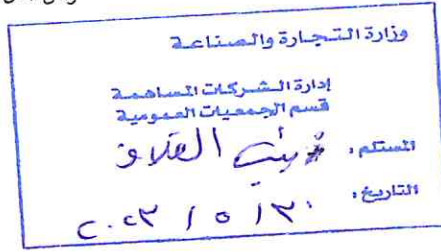 وزارة التجارة والصناعة
إدارة الشركات المساهمة
قسم الجمعيات العمومية
المستلم: زينب القلاف
التاريخ: ٣٠ / ٥ / ٢٠٢٣